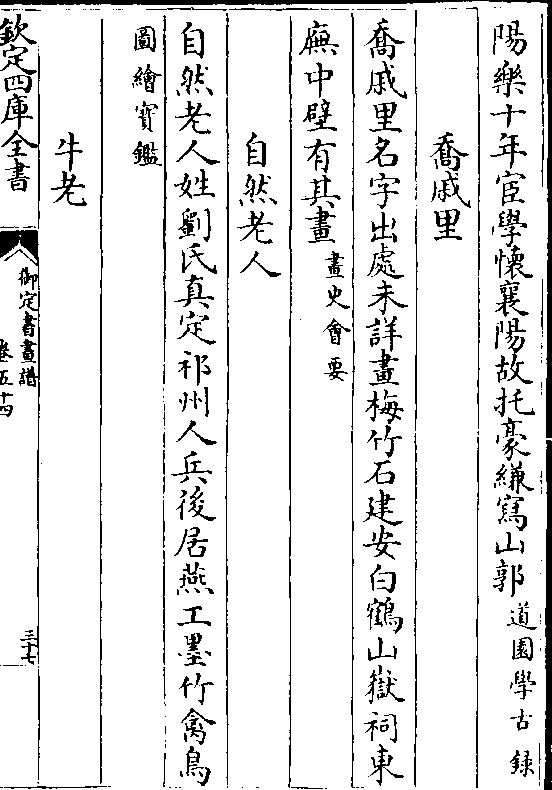 陽樂十年宦學懷襄陽故托豪縑寫山郭道園學古錄
喬戚里
喬戚里名字出處未詳畫梅竹石建安白鶴山嶽祠東
廡中壁有其畫畫史會要
自然老人
自然老人姓劉氏真定祁州人兵後居燕工墨竹禽鳥
圖繪寶鑑
牛老
欽定四庫全書
御定書畫譜
卷五十四
三十七